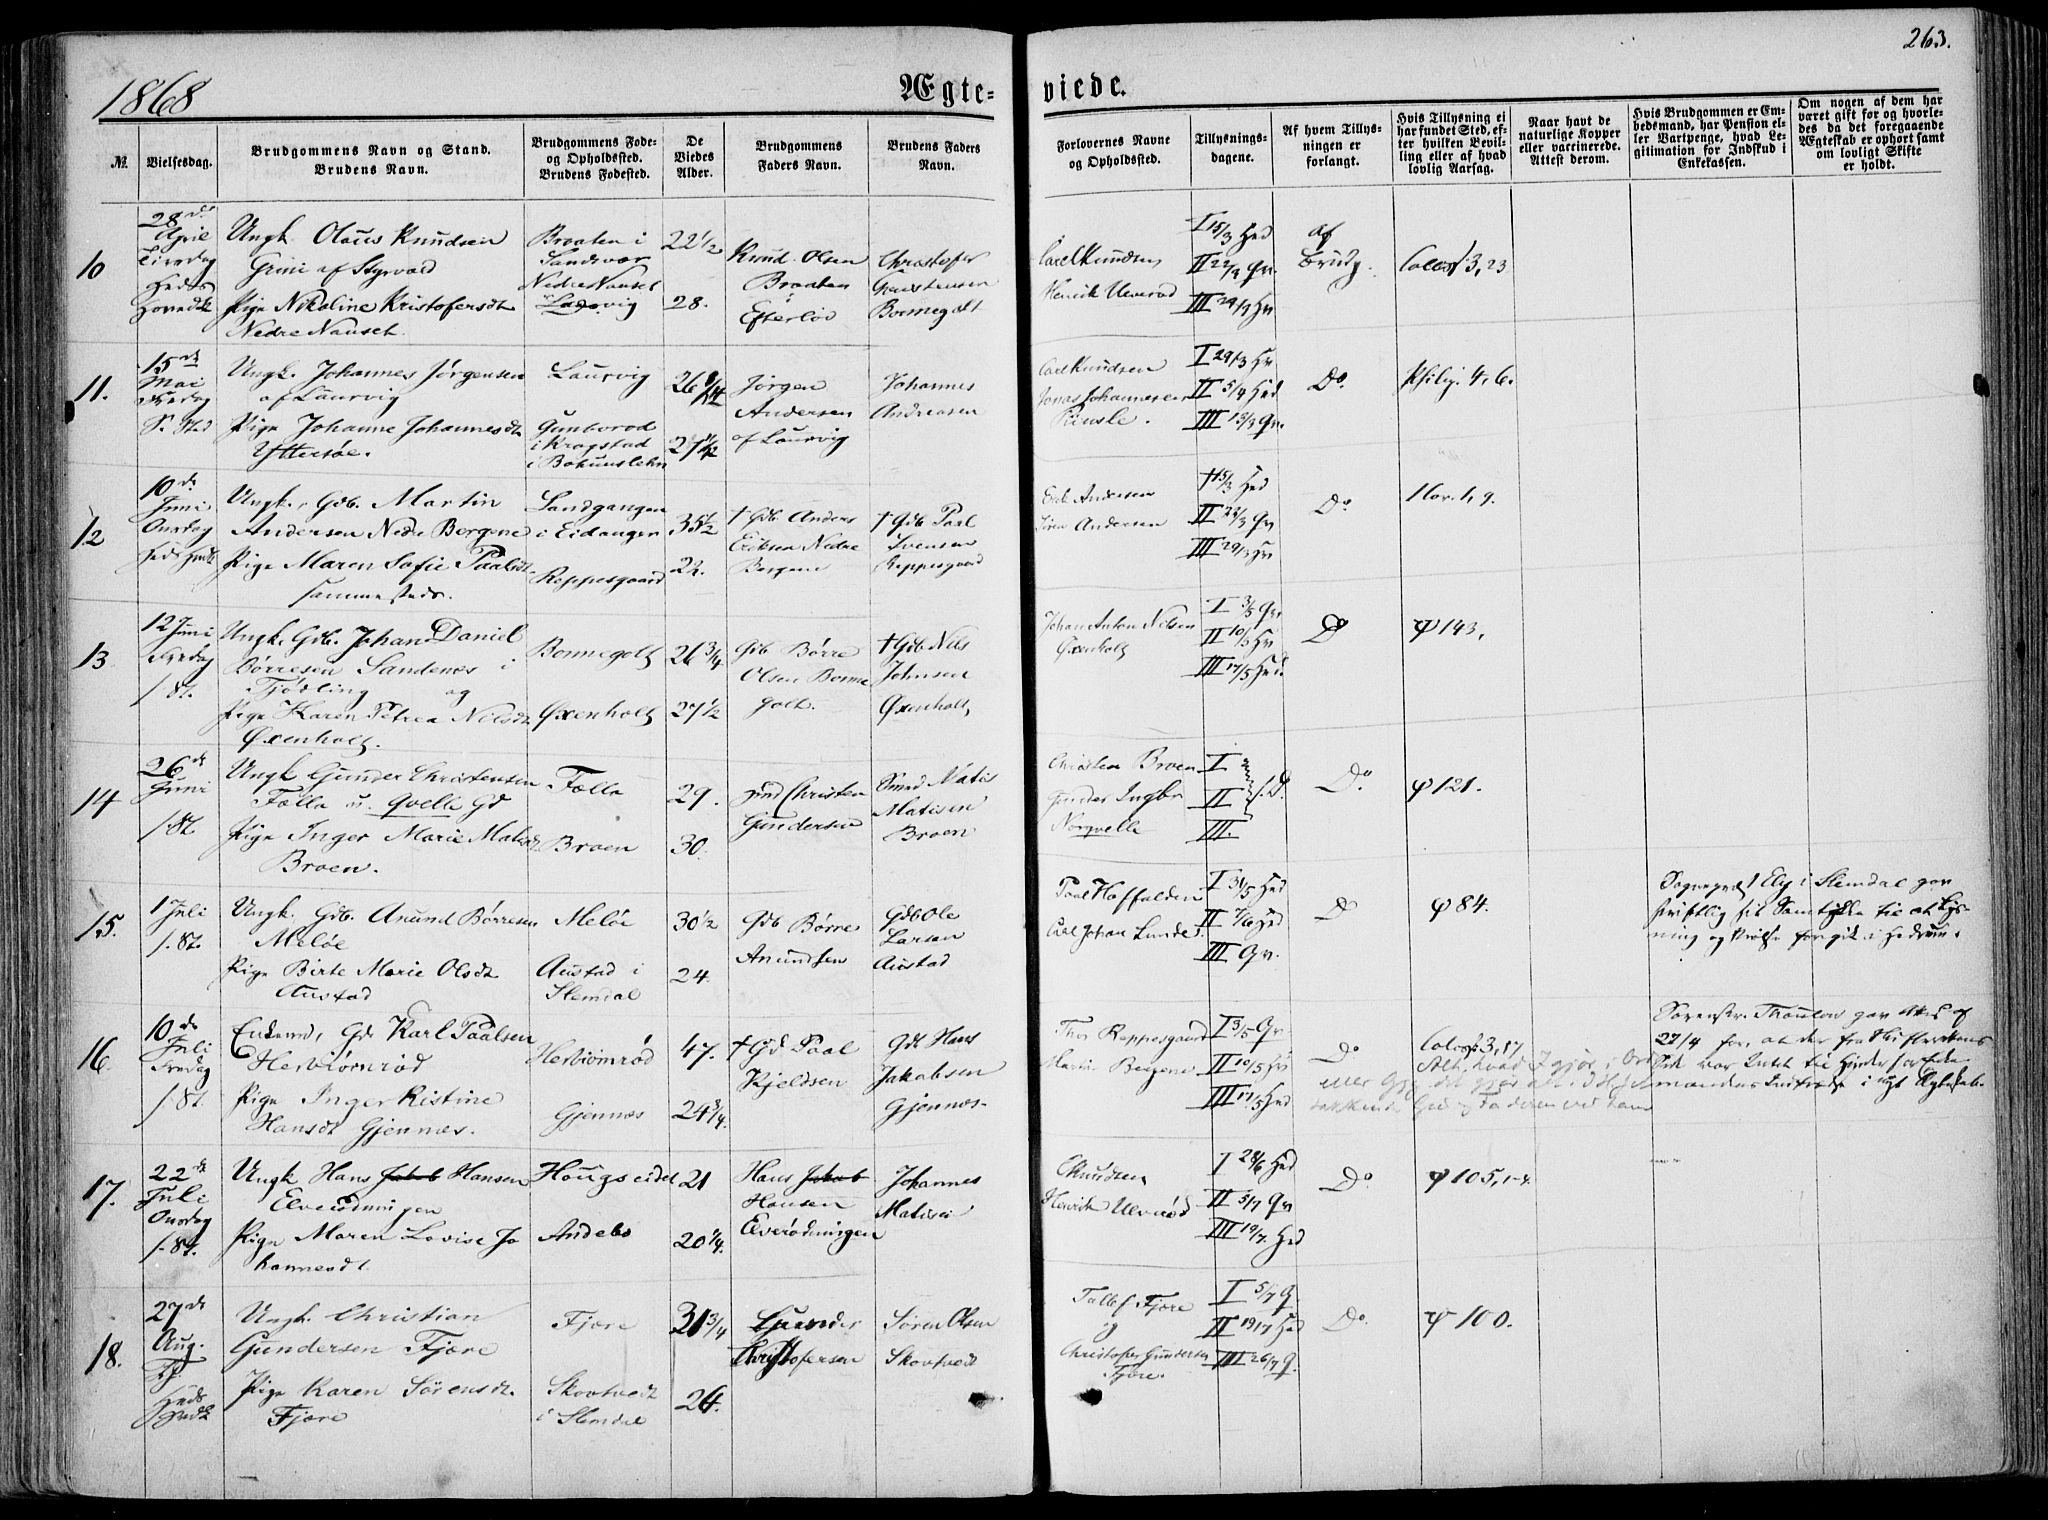 263.
1868
Ægte-viede.
№
Vielsesdag.
Brudgommens Navn og Stand.
Brudens Navn.
Brudgommens Føde-
og Opholdssted.
Brudens Fødested.
De
Viedes
Alder.
Brudgommens
Faders Navn.
Brudens Faders
Navn.
Forlovernes Navne
og Opholdssted.
Tillysnings-
dagene.
Af hvem Tillys-
ningen er
forlangt.
Hvis Tillysning ei
har fundet Sted, ef-
ter hvilken Bevil-
ling eller af hvad
lovlig Aarsag.
Naar havt de
naturlige Kopper
eller vaccinerede.
Attest derom.
Hvis Brudgommen er Em-
bedsmand, har Pension el-
ler Vartpenge, hvad Le-
gitimation for Indskud i
Enkekassen.
Om nogen af dem har
været gift før og hvorle-
des da det foregaaende
Ægteskab er ophørt samt
om lovligt Skifte
er holdt.
10
28de
April
Tirsdag
Ungk. Olaus Knudsen
Grini af Styrvold
Pige Nikoline Kristofersdt
Nedre Nauset.
Braaten i
Sandsvær
Nedre Nauset
Laurvig
22 1/2
28.
Knud Olsen
Braaten
Efterløv
Christofer
Bonnegolt
Carl Knudsen
Henrik Ulverød
I 15/3 Hed
II 22/3 Qv.
III 29/3 Hv
af
Brudg.
Colos. 3, 23
11.
15de
Mai
Fredag
Ungk. Johannes Jørgensen
af Laurvig
Pige Johanne Johannesdt
Yttersøe.
Laurvig
Gunborod
i Krogstad
i Bohuuslehn
Jørgen
Andersen
af Laurvig
Johannes
Andreasen
Carl Knudsen
Jonas Johannesen
I 29/3 Hv
II 5/4 Hed
III 13/3 Qv.
Do.
Philip. 4, 6.
12
10de
Juni
Onsdag
Ungk., Gdb. Martin
Andersen Nedre Bergene
Pige Maren Sofie Paalsdt
sammesteds.
Landgangen
i Eidanger
Reppesgaard
35 1/2
22.
† Gdb. Anders
Eriksen Nedre
Bergene
† Gdb Paal
Svensen
Reppesgaard
Erik Andersen
Søren Andersen
I 15/3 Hed
II 22/3 Qv
III 29/3 Hv
Do
1 Cor. 1, 9.
13
12 Juni
Fredag
/ St.
Ungk. Gdb. Johan Daniel
Børresen Sandenes i
Tjødling og
Pige Karen Petrea Nilsdt
Øxenholt.
Bonnegolt
Øxenholt
26 3/4
27 1/2
Gdb Børre
Olsen Bonne
golt.
† Gdb Nils
Johnsen
Øxenholt
Johan Anton Nilsen
Øxenholt
I 3/5 Qv
II 10/5 Hv
III 17/5 Hed.
Do
ψ 143,
14
26de
Juni
/ St.
Ungk Gunder Christensen
Fælle
Pige Inger Marie Matisdt
Broen.
Fælle
Broen
29.
30.
Christen
Gundersen
Matis
Matisen
Broen
Christen Broen
Gunder
I
II
III.
Do.
ψ 121.
15.
1 Juli
/. St.
Ungk. Gdb. Anund Børresen
Meløe
Pige Birte Marie Olsdt
Austad
Meløe
Austad i
Slemdal
30 1/2
24.
Gdb Børre
Anundsen
Gdb Ole
Larsen
Austad
Paal Haffalden
Carl Johan Lunde.
I 31/5 Hed
II 7/6 Hed
III Qv.
Do
ψ 84.
Sogneprest Ely i Slemdal gav
skriftlig sit Samtykke til at Lys-
ning og Vielse foregik i Hedrum.
16.
10de
Juli
Fredag
/. St.
Enkemd, Gdb Karl Paalsen
Herbiørnrød
Pige Inger Kristine
Hansdt Gjønnes.
Herbiørnrød
Gjennes
47.
24 3/4.
† Gdb Paal
Kjeldsen
Gdb Hans
Jakobsen
Gjennes
Thor Reppesgaard
Martin Bergene
I 3/5 Qv
II 10/5 Hv
III 17/5 Hed
Do
Colos. 3, 17
Alt, hvad I gjør i Ord
eller Gjg. det gjør alt i
takkende Gud og Faderen ved ham
17.
22de
Juli
Onsdag
/. St.
Ungk Hans Jakob Hansen
Elverødningen
Pige Maren Lovise Jo
hannesdt.
Hougseidet
Andebo
21
20 1/4.
Hans Jakob
Hansen
Elverødningen
Johannes
Matisen
C Knudsen
Henrik Ulverød
I 28/6 Hed
II 5/7 Qv
III 19/7. Hed
Do.
ψ 105, 1-4.
18.
27de
Aug.
Ungk. Christian
Gundersen Fjære
Pige Karen Sørensdt.
Fjære
Fjære
Skovtvedt
i Slemdal
31 3/4
24.
Gunder
Christofersen
Søren Olsen
Skovtvedt
Tollef Fjære
og
Christofer Gundersen
Fjære.
I 5/7 Q.
II 19/7 Hed
III 26/7 Q.
Do.
ψ 100.